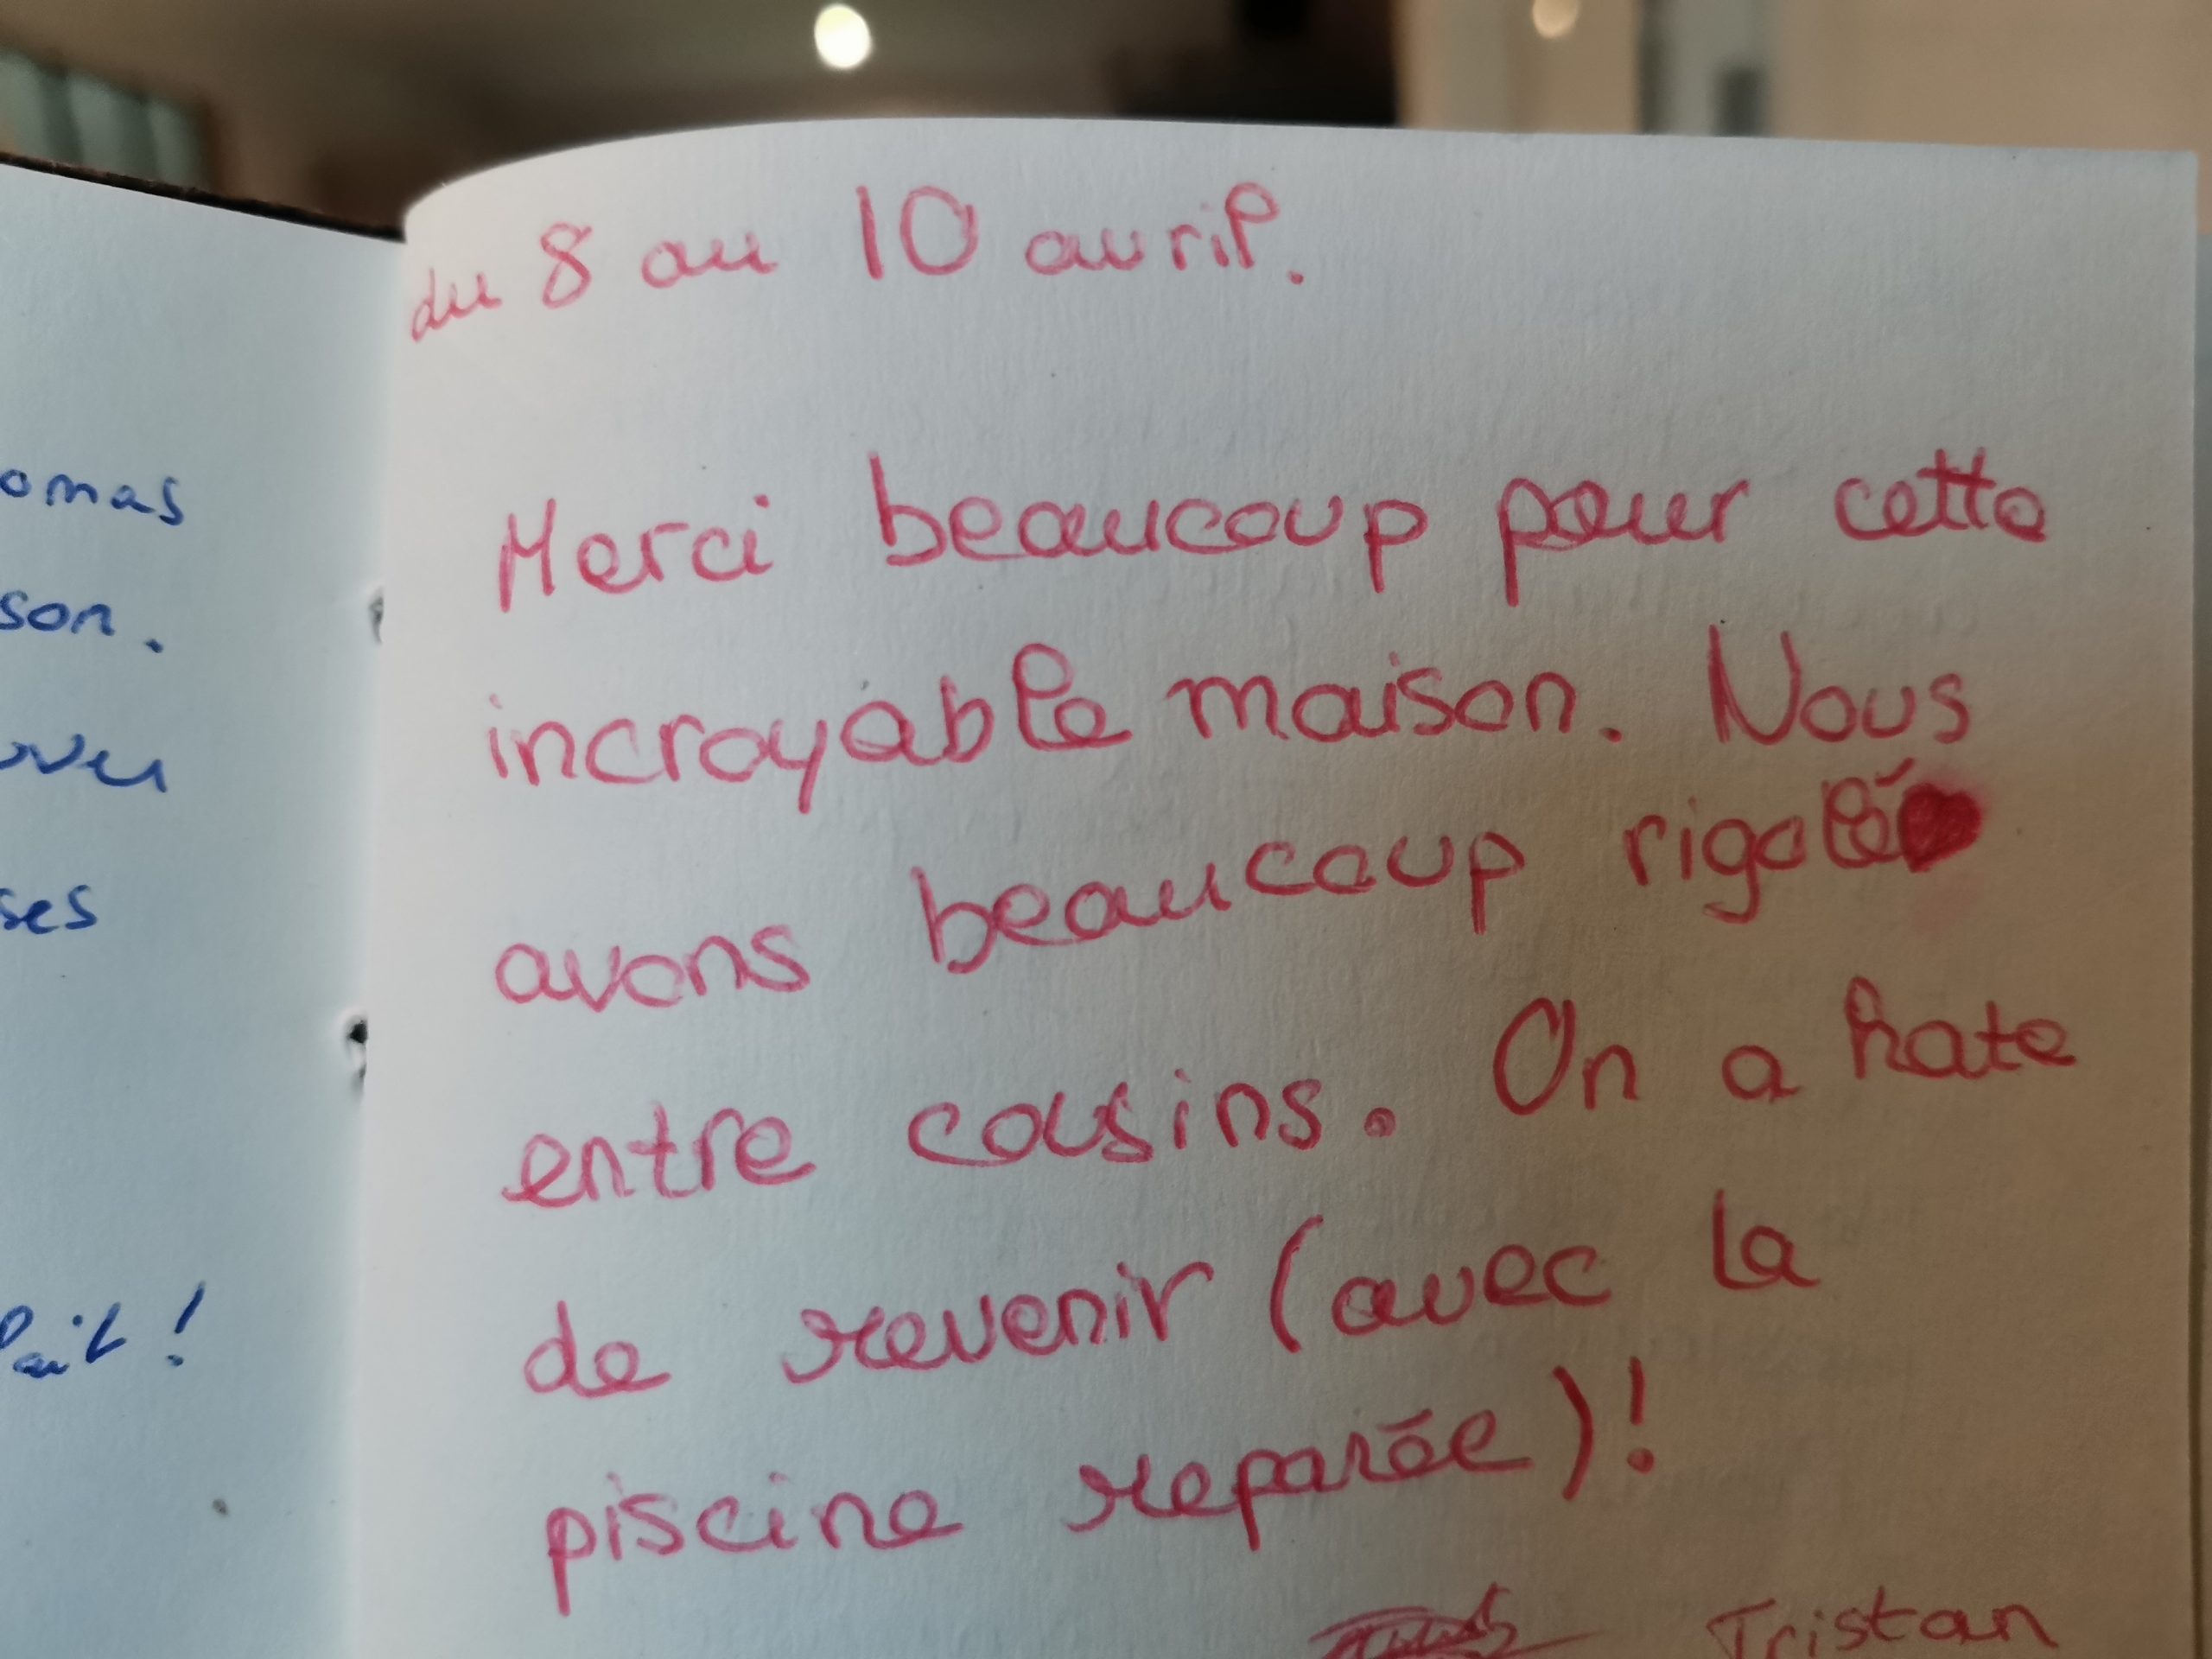 omas
son.
ses
du 8 au 10 avril.
Merci beaucoup pour cette
incroyable maison. Nous
avons beaucoup rigolé
entre cousins. On a hate
de revenir (avec la
piscine reparée)!
Tristan